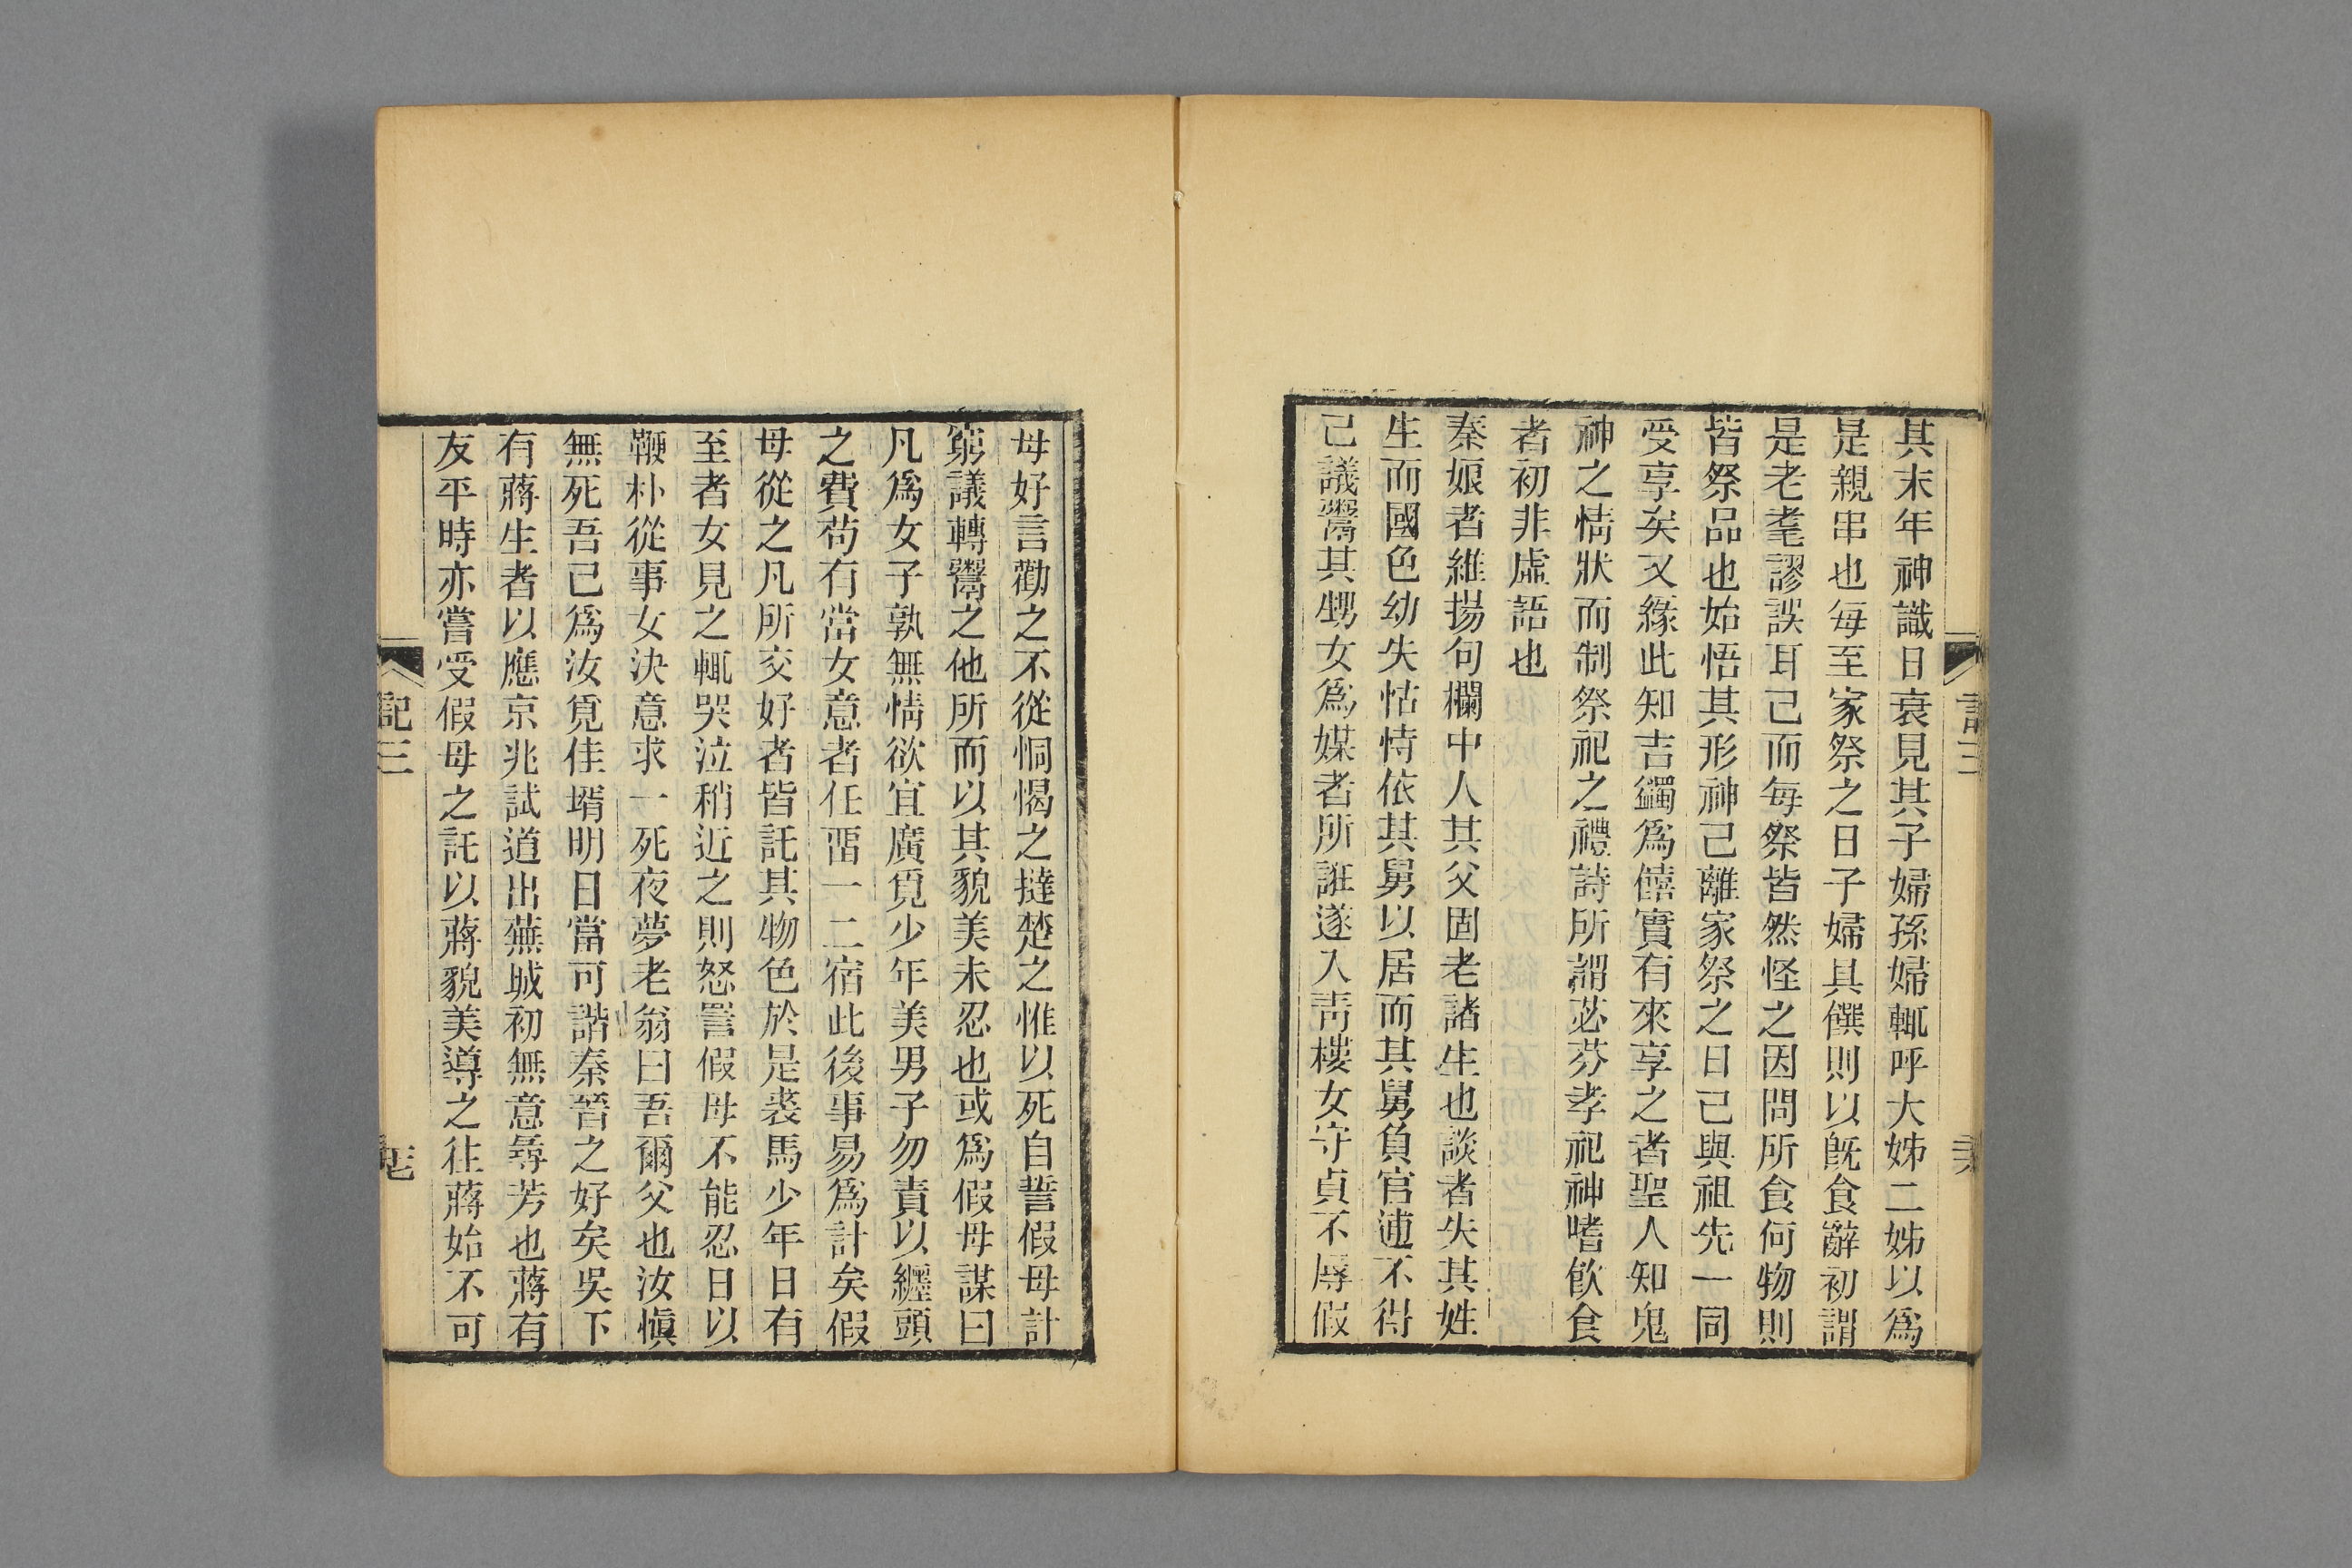 其末年神識日衰見其子婦孫婦輒呼大姊二姊以爲
是親串也每至家祭之日子婦具饌則以旣食辭初謂
是老耄謬誤耳已而每祭皆然怪之因問所食何物則
皆祭品也始悟其形神已離家祭之日已與祖先一同
受享矣又緣此知吉蠲爲饎實有來享之者聖人知鬼
神之情狀而制祭祀之禮詩所謂苾芬孝祀神嗜飮食
者初非虛語也
秦娘者維揚句欄中人其父固老諸生也談者失其姓
生而國色幼失怙恃依其舅以居而其舅負官逋不得
已議鬻其甥女爲媒者所誑遂入靑樓女守貞不辱假
記三
母好言勸之不從恫愒之撻楚之惟以死自誓假母計
窮議轉鬻之他所而以其貌美未忍也或爲假母謀曰
凡爲女子孰無情欲宜廣覓少年美男子勿責以纏頭
之費苟有當女意者任畱一二宿此後事易爲計矣假
母從之凡所交好者皆託其物色於是裘馬少年日有
至者女見之輒哭泣稍近之則怒詈假母不能忍日以
鞭朴從事女決意求一死夜夢老翁曰吾爾父也汝愼
無死吾已爲汝覓佳壻明日當可諧秦晉之好矣吳下
有蔣生者以應京兆試道出蕪城初無意尋芳也蔣有
友平時亦嘗受假母之託以蔣貌美導之往蔣始不可
記三